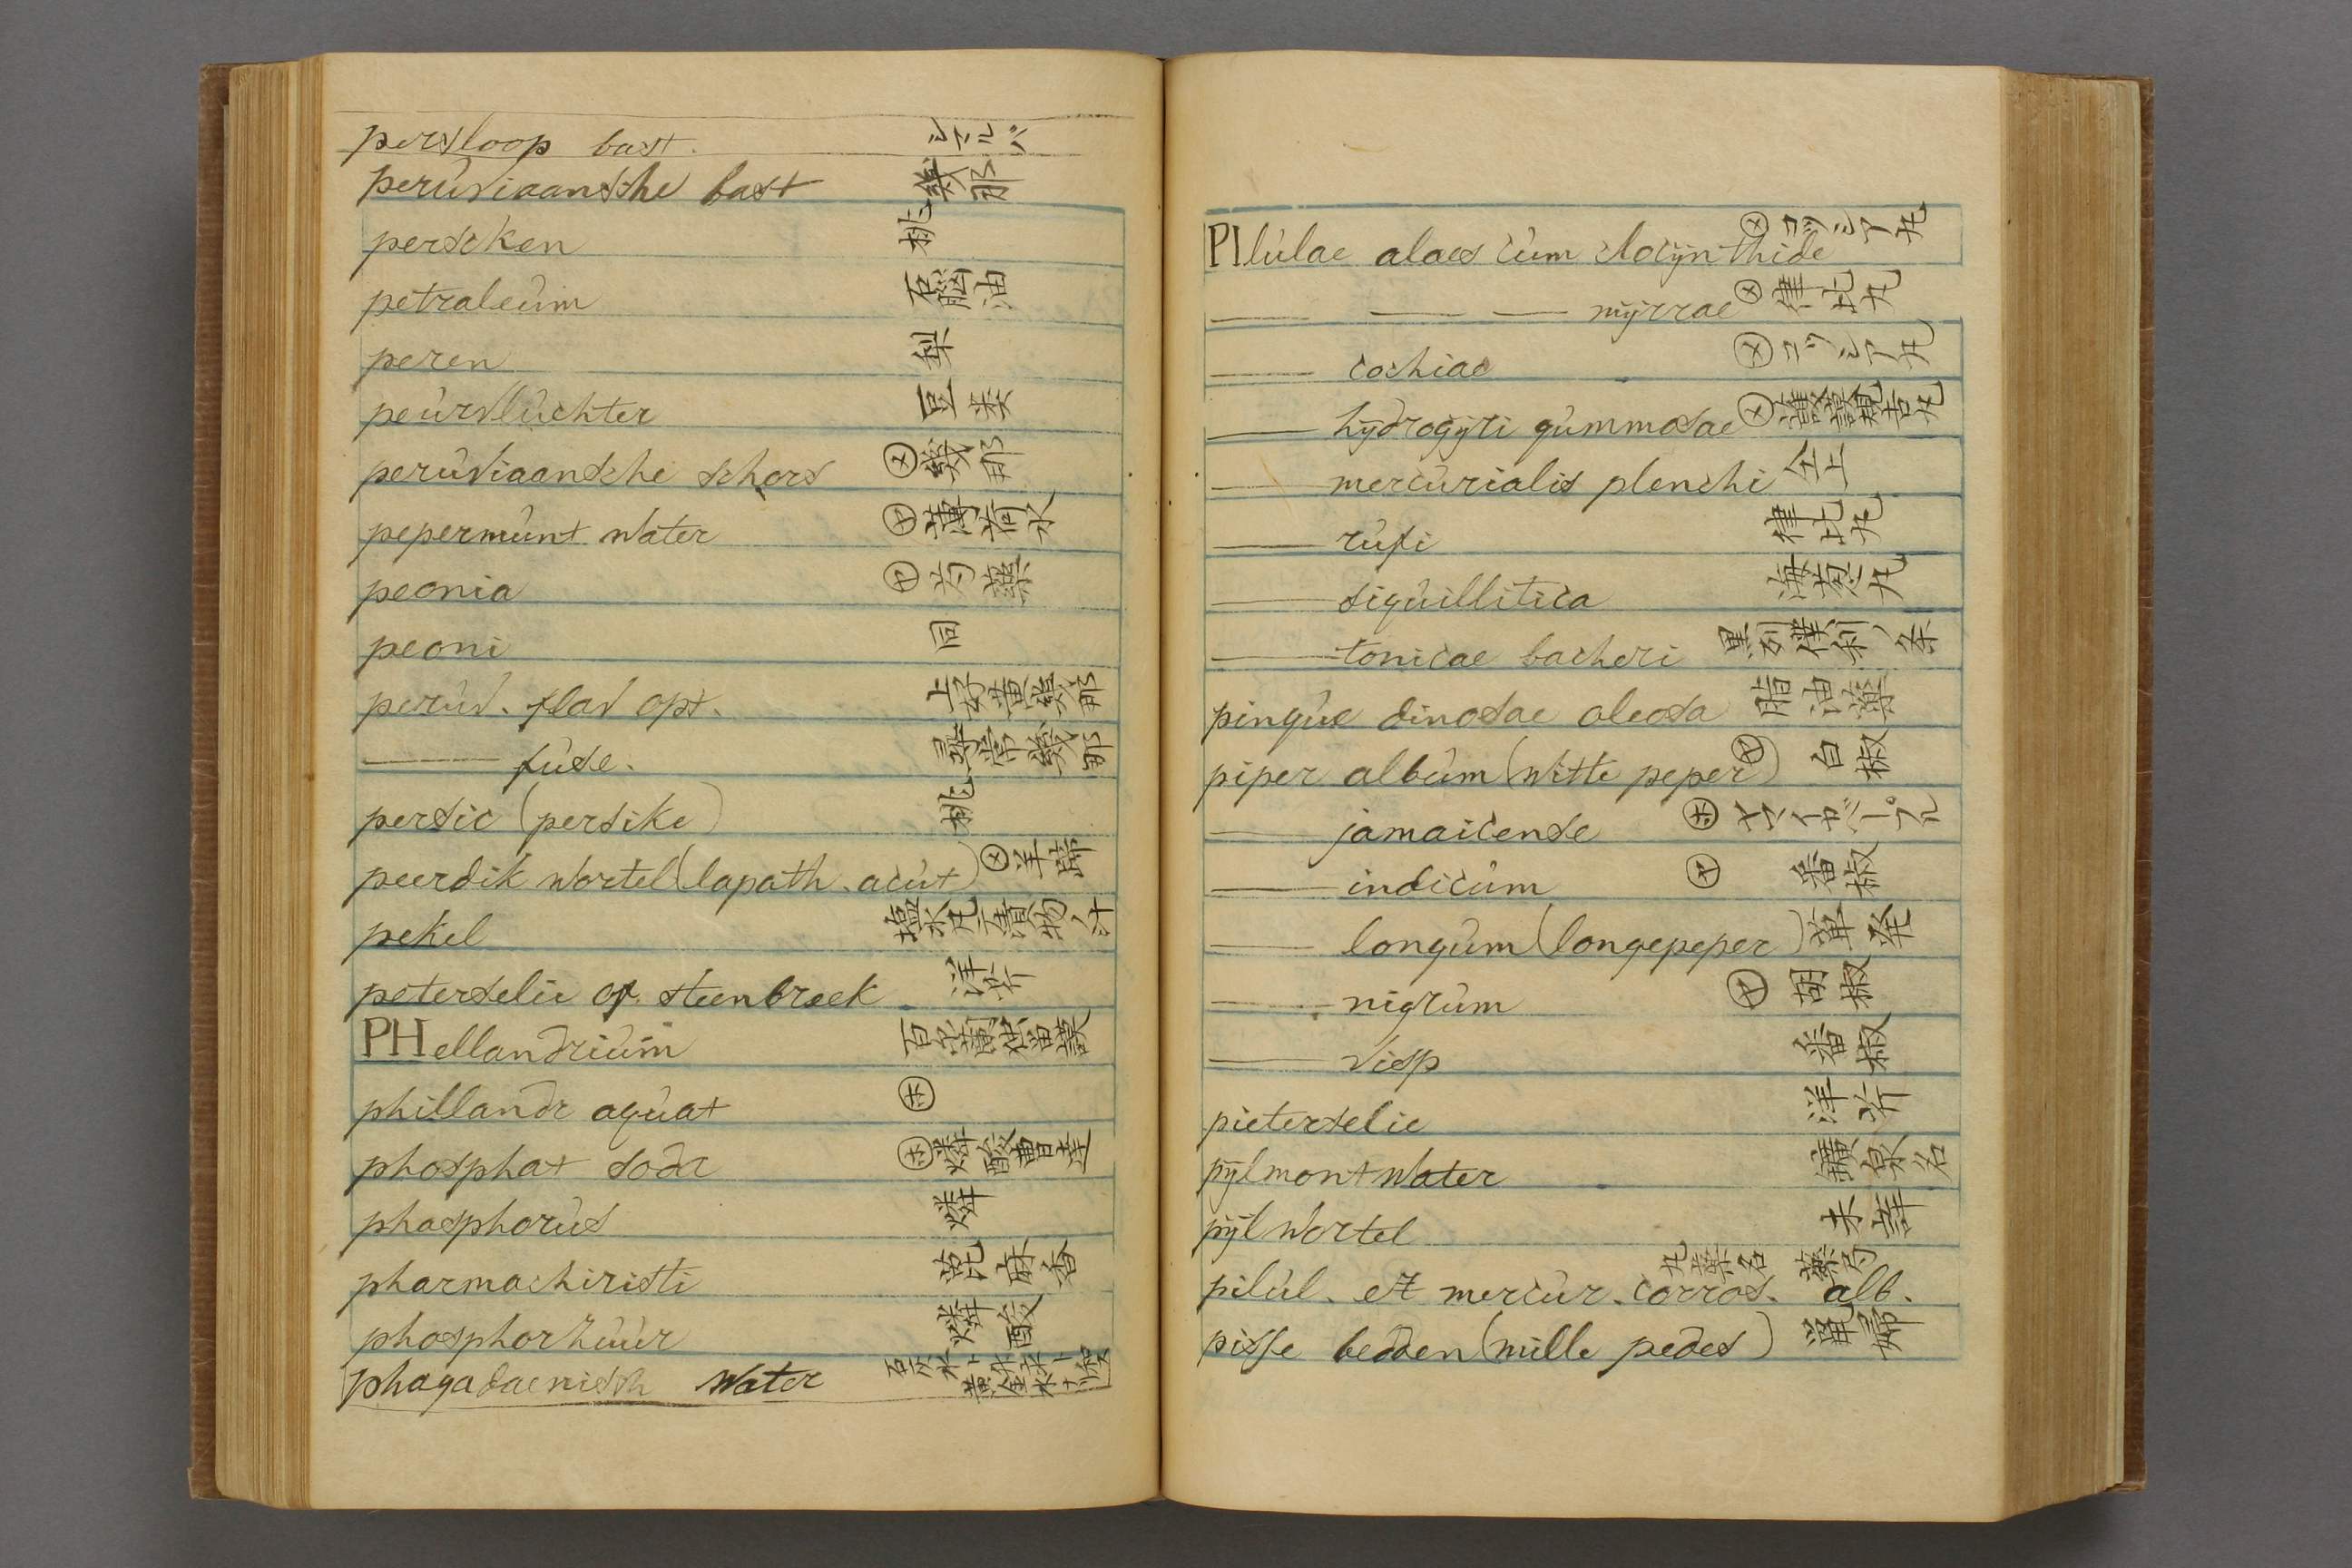 persloop bast. シマルバ
perúviaansche bast 幾那
perscken 桃
petraleúm 石脳油
peren 梨
peúrvlúchter 豆
perúviaansche schors ㋱幾那
pepermúnt water ㋳薄荷水
peonia ㋳芍薬
peoni 同
perúv. flav opt. 上好黄幾那
——— fúse. 尋常幾那
persic (persike) 桃
peerdik wortel (lapath. acút) ㋱羊蹄
pekel 塩水凡テ漬物ノ汁
peterselie of. steenbreek 洋芹
PHellandriúm
phillandr aqúat ㋭
phosphat soda ㋭燐酸曹達
phasphorús 燐
pharmachiristi
phosphorzúúr 燐酸
phagadaenisch water
PIlúlae alaes cúm clocÿnthide ㋱コッシア丸
—— —— —— mÿrrae ㋱律比丸
——— coshiae ㋱コッシア丸
——— hÿdrogÿri gúmmosae ㋱
——— mercúrialis plenchi 仝上
——— rúfi 律比丸
——— siqúillitica 海葱丸
——— tonicae bacheri
pingúe dinosae oleosa 脂油薬
piper albúm (witte peper) ㋳ 白椒
——— jamaicense ㋭
——— indicúm ㋳ 番椒
——— longúm (longepeper)
——— nigrúm ㋳ 胡椒
——— visp 番椒
pieterselie 洋芹
pÿlmont water 鑛泉名
pÿl wortel 未詳
pilúl. et mercúr. corros. alb. 丸薬名
pisse bedden (mille pedes)